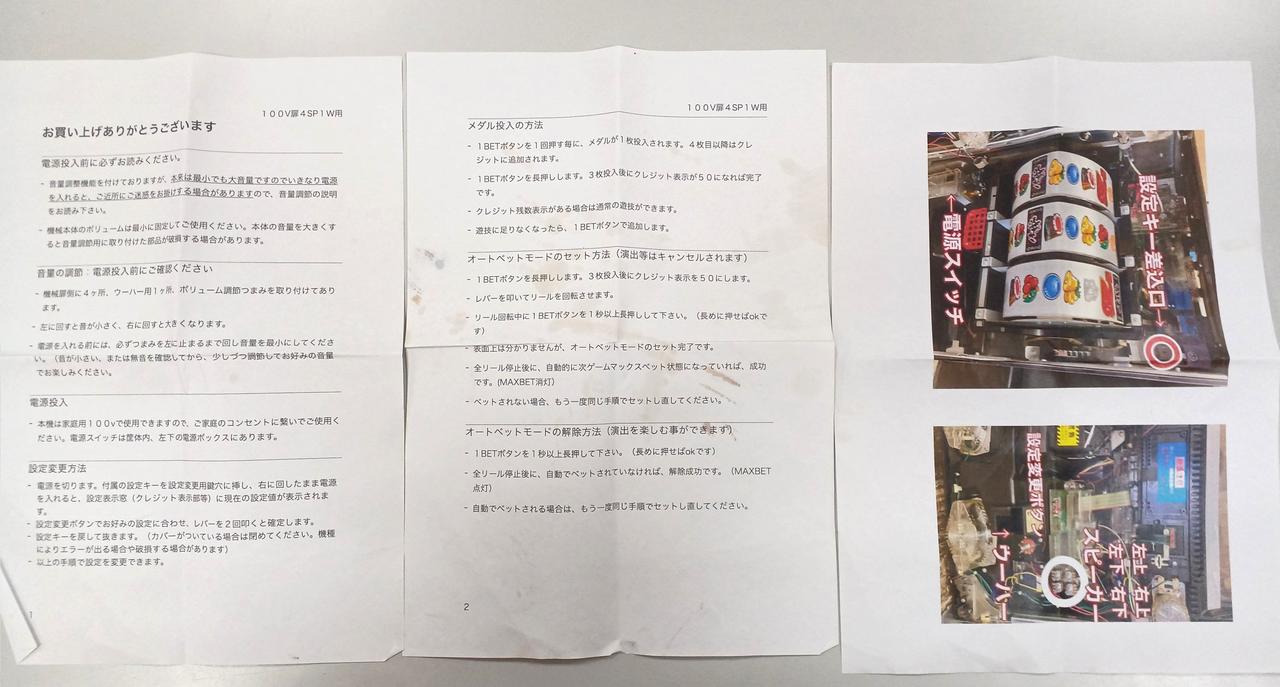 100V扉4SP1W用
お買い上げありがとうございます
電源投入前に必ずお読みください。
- 音量調整機能を付けておりますが、本来は最小でも大音量ですのでいきなり電源
を入れると、ご近所にご迷惑をお掛けする場合がありますので、音量調節の説明
をお読み下さい。
- 機械本体のボリュームは最小に固定してご使用ください。本体の音量を大きくす
ると音量調節用に取り付けた部品が破損する場合があります。
音量の調節：電源投入前にご確認ください
- 機械扉側に4ヶ所、ウーハー用1ヶ所、ボリューム調節つまみを取り付けてあり
ます。
- 左に回すと音が小さく、右に回すと大きくなります。
- 電源を入れる前には、必ずつまみを左に止まるまで回し音量を最小にしてくださ
い。（音が小さい、または無音を確認してから、少しづつ調節してお好みの音量
でお楽しみください。
電源投入
- 本機は家庭用100vで使用できますので、ご家庭のコンセントに繋いでご使用く
ださい。電源スイッチは筐体内、左下の電源ボックスにあります。
設定変更方法
- 電源を切ります。付属の設定キーを設定変更用鍵穴に挿し、右に回したまま電源
を入れると、設定表示窓（クレジット表示部等）に現在の設定値が表示されま
す。
- 設定変更ボタンでお好みの設定に合わせ、レバーを2回叩くと確定します。
- 設定キーを戻して抜きます。（カバーがついている場合は閉めてください。機種
によりエラーが出る場合や破損する場合があります）
- 以上の手順で設定を変更できます。
1
100V扉4SP1W用
メダル投入の方法
- 1BETボタンを1回押す毎に、メダルが1枚投入されます。4枚目以降はクレ
ジットに追加されます。
- 1BETボタンを長押しします。3枚投入後にクレジット表示が50になれば完了
です。
- クレジット残数表示がある場合は通常の遊技ができます。
- 遊技に足りなくなったら、1BETボタンで追加します。
オートベットモードのセット方法（演出等はキャンセルされます）
- 1BETボタンを長押しします。3枚投入後にクレジット表示を50にします。
- レバーを叩いてリールを回転させます。
- リール回転中に1BETボタンを1秒以上長押しして下さい。（長めに押せばokで
す）
- 表面上は分かりませんが、オートベットモードのセット完了です。
- 全リール停止後に、自動的に次ゲームマックスベット状態になっていれば、成功
です。(MAXBET消灯)
- ベットされない場合、もう一度同じ手順でセットし直してください。
オートベットモードの解除方法（演出を楽しむ事ができます）
- 1BETボタンを1秒以上長押して下さい。（長めに押せばokです）
- 全リール停止後に、自動でベットされていなければ、解除成功です。（MAXBET
点灯)
- 自動でベットされる場合は、もう一度同じ手順でセットし直してください。
2
設定キー差込口→
←電源スイッチ
左上 右上
左下 右下
スピーカー
設定変更ボタン
↑ウーハー